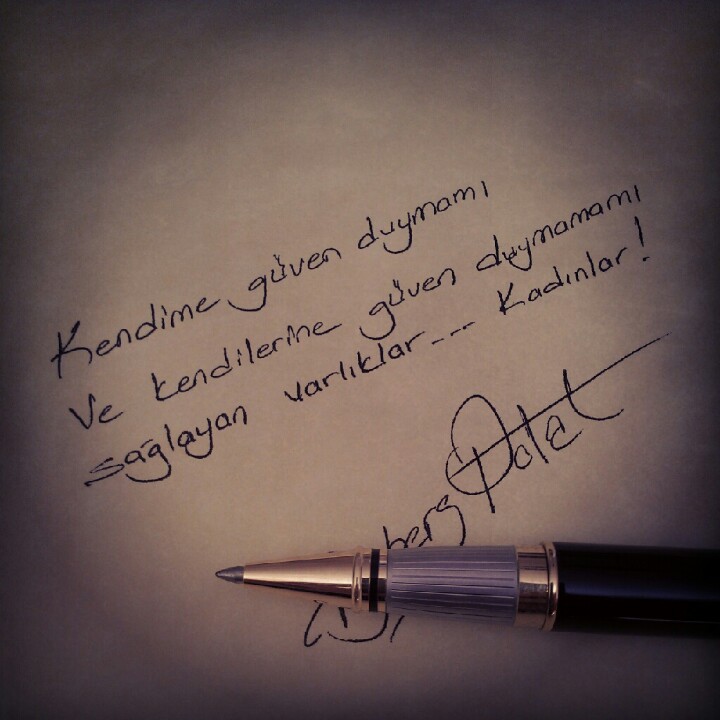 Kendime güven duymamı
Ve kendilerine güven duymamamı
sağlayan varlıklar... Kadınlar!
Polat